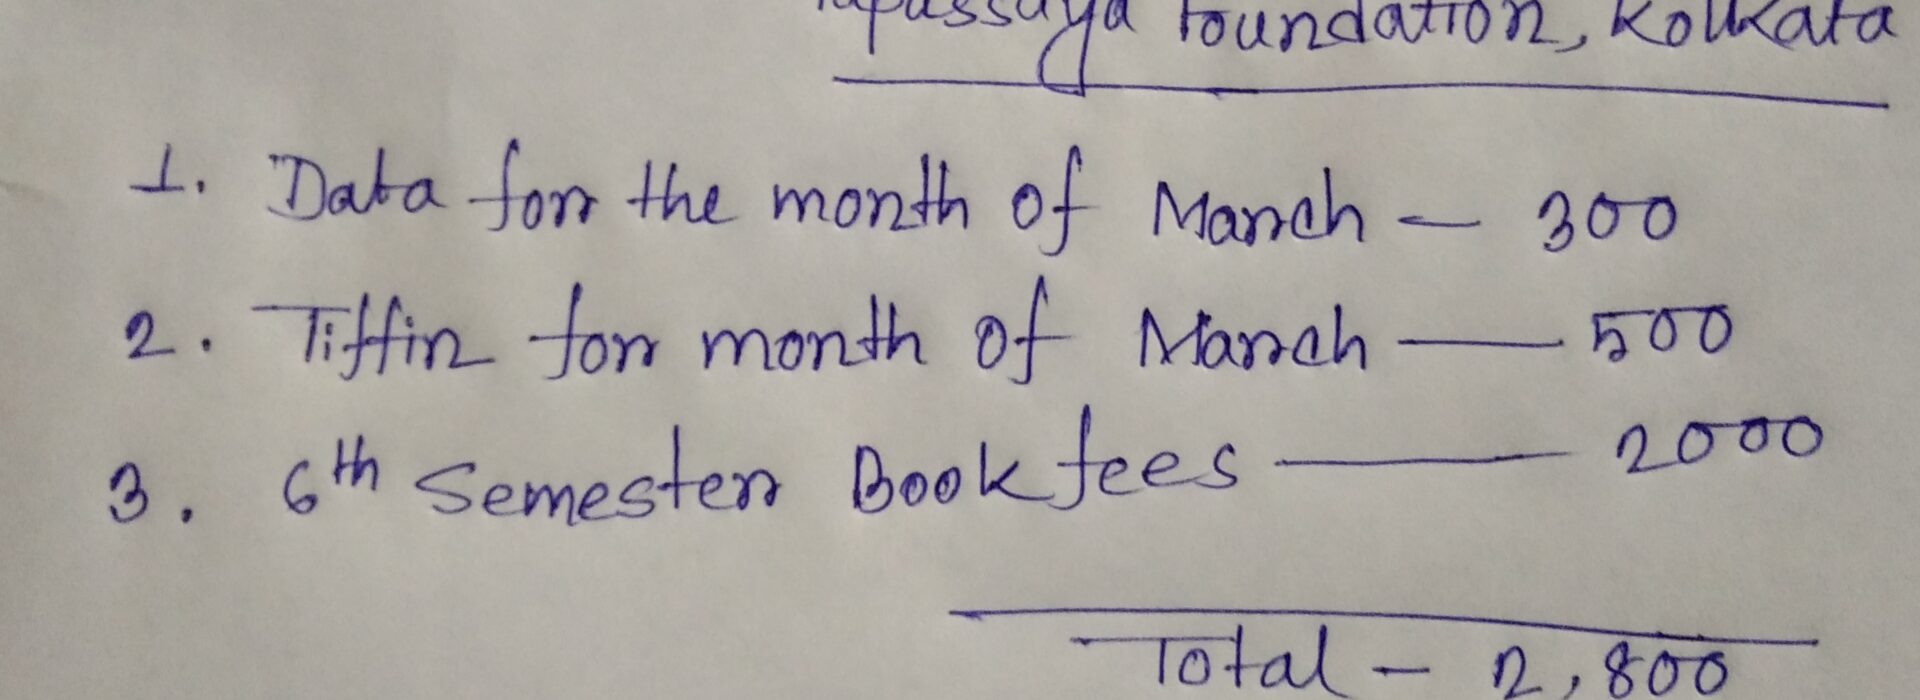 Tapassaya Foundation, Kolkata
1. Data for the month of March — 300
2. Tiffin for month of March — 500
3. 6th Semester Book fees — 2000
Total — 2,800